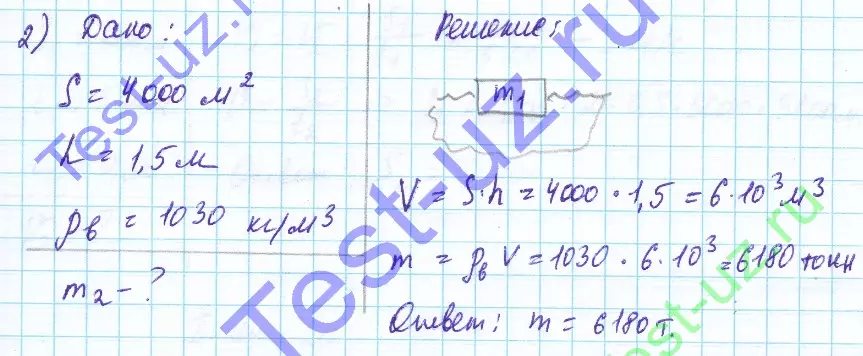 2) Дано:
S = 4000 м²
h = 1,5 м
ρв = 1030 кг/м³
m₂ - ?
Решение:
m₁
V = S·h = 4000 · 1,5 = 6·10³ м³
m = ρв V = 1030 · 6·10³ = 6180 тонн
Ответ: m = 6180 т.
Test-uz.ru
Test-uz.ru
Test-uz.ru